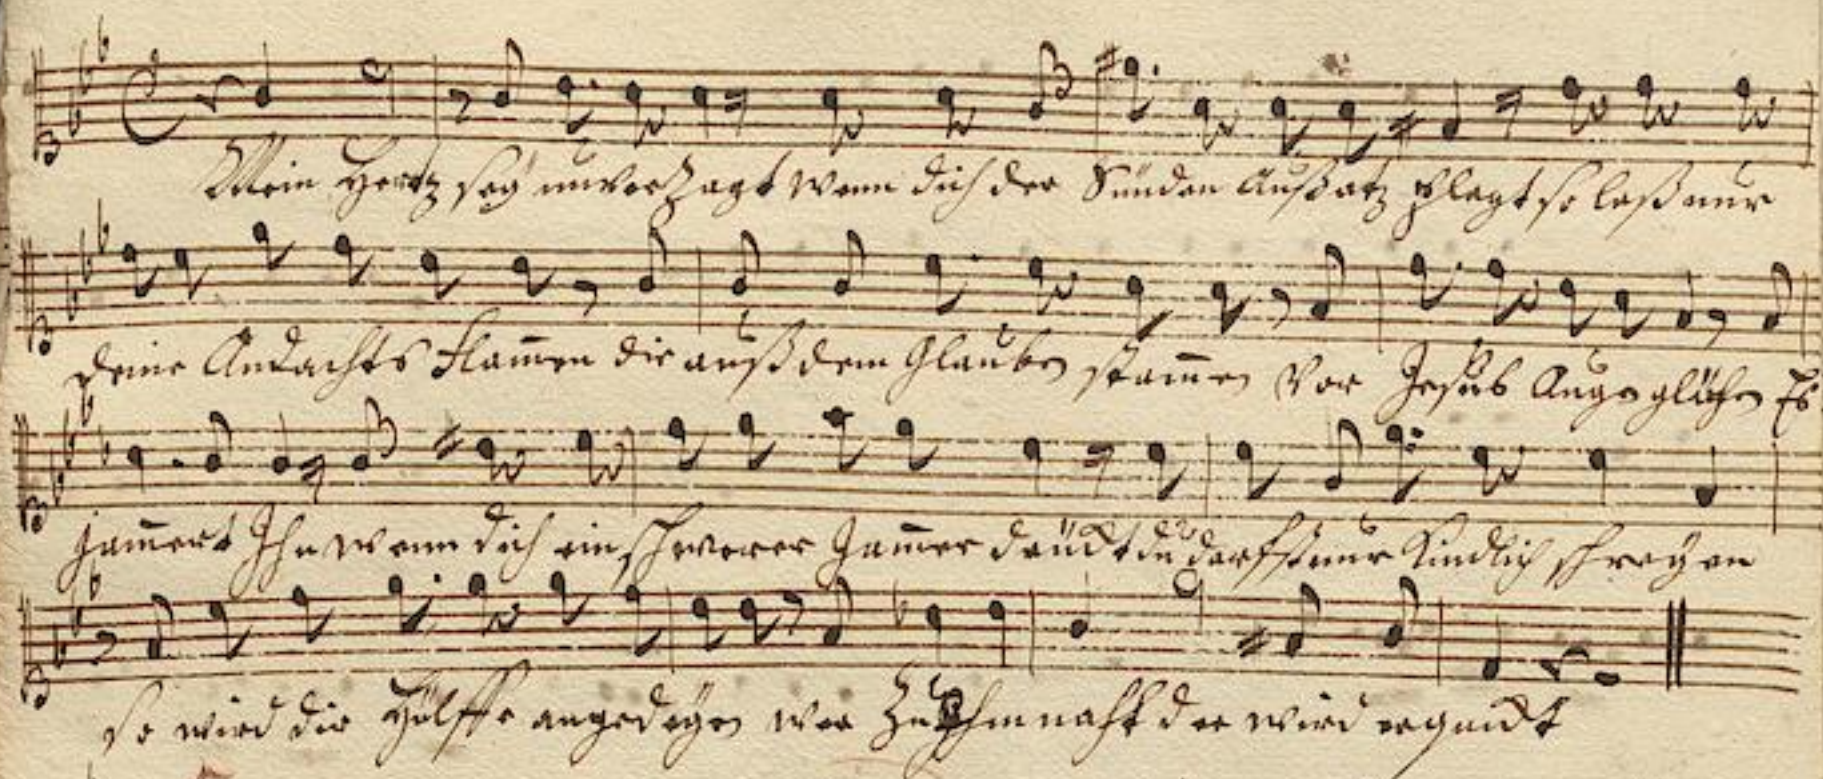 Mein Hertz seÿ unverzagt wenn dich der Sünden Außsatz plagt so laß nur
deine Andachts Flam̄en die auß dem Glauben stam̄en vor Jesus Auge glühen Es
jam̄ert Ihn wenn dich ein schwerer Jam̄er drückt du darfst nur kindlich schreÿen
so wird dir Hülffe angedeÿen wer zu Ihm naht der wird erquickt